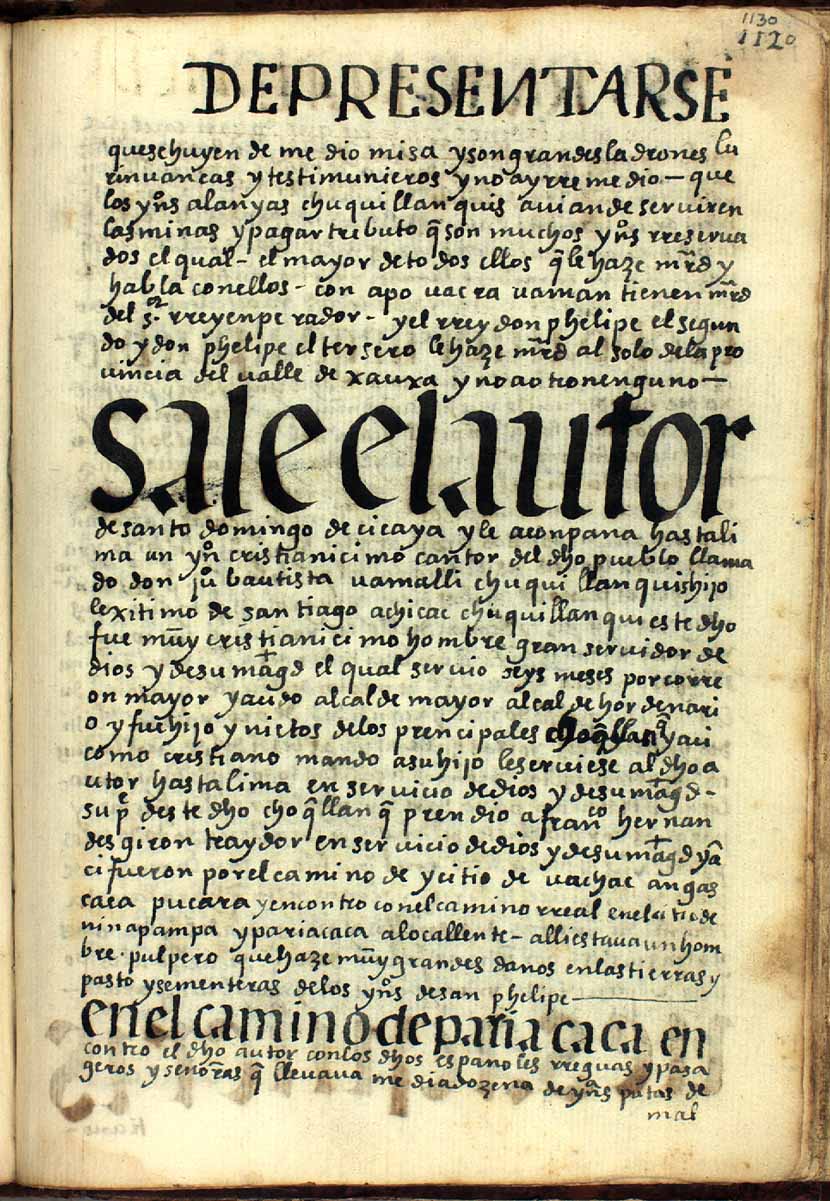 1130
1120
DEPRESENTARSE
quesehuyen de medio misa ysongrandesladrones lu
rinuancas y testimunieros yno ayrremedio — que
los yn̊s alanyas chuquillanquis auiande seruiren
lasminas ypagar tributo q̃ son muchos yn̊s rreserua
dos el qual - el mayor detodos ellos q̃ le haze mr̃d y
habla conellos - con apo uacra uaman tienen mr̃d
del s.or rreyenperador - yel rrey don phelipe el segun
do y don phelipe el tersero lehaze mr̃d al solo dela pro
uincia del ualle de xauxa y noaotronenguno —
sale el autor
desanto domingo de cicaya yle aconpana hastali
ma un yn̊ cristianicimo cantor del dho pueblo llama
do don jů bautista uamalli chuqui llanquishijo
lexitimo de santiago achicac chuquillanqui este dho
fue muy cristianicimo hombre gran seruidor de
dios y desumagd el qual seruio seys meses porcorre
on mayor yacido alcalde mayor alcalde hordenari
o y fuehijo y nietos delos prencipales choq̃llanq̃ yaci
como cristiano mando asuhijo leseruiese al dhoa
utor hastalima en seruicio dedios y desumagd -
su p.e deste dho choq̃llanq̃ prendio a fran.co hernan
des giron traydor en seruicio dedios y desumagd ya
ci fueron por el camino de ycitio de uachac angas
caca pucara yencontro conelcamino rreal enelcitiode
ninapampa ypariacaca alocallente - alliestauaunhom
bre pulpero quehaze muygrandes danos enlastierras y
pasto ysementeras delos yn̊s desan phelipe —
en el camino de paria caca en
contro el dho autor conlos dhos espanoles rreguas ypasa
geros y senoras q̃ lleuaua mediadozena de yn̊s putas de
mal